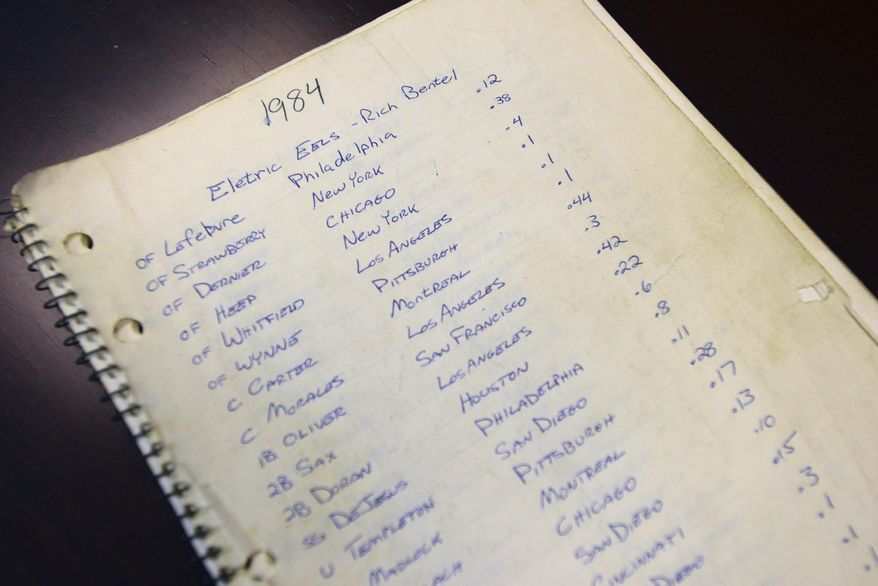 1984
Eletric Eels - Rich Bentel
OF Lefebvre Philadelphia .12
OF Strawberry New York .38
OF Dernier Chicago .4
OF Heep New York .1
OF Whitfield Los Angeles .1
OF Wynne Pittsburgh .1
C Carter Montreal .44
C Morales Los Angeles .3
1B Oliver San Francisco .42
2B Sax Los Angeles .22
2B Doran Houston .6
SS DeJesus Philadelphia .8
U Templeton San Diego .11
Madlock Pittsburgh .28
ach Montreal .17
Chicago .13
San Diego .10
Cincinnati .15
Diego .3
.1
.1
.1